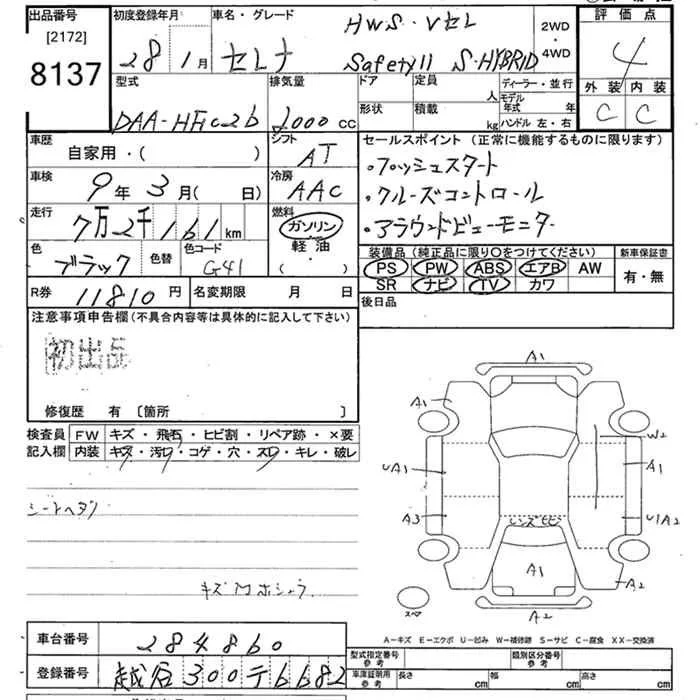 出品番号
[2172]
8137
初度登録年月
28 1月
車名・グレード
セレナ
HWS・Vセレ
SafetyII S・HYBRID
2WD
・
4WD
評価点
4
外装 内装
C C
型式
排気量
2000 cc
ドア
形状
定員
人
積載
kg
ディーラー・並行
モデル年式 年
ハンドル 左・右
車歴
自家用・( )
シフト
AT
セールスポイント (正常に機能するものに限ります)
・プッシュスタート
・クルーズコントロール
・アラウンドビューモニター
車検
9年3月( 日)
冷房
AAC
走行
7万2千161km
燃料
ガソリン
軽油・
( )
色
ブラック
色替
色コード
G41
装備品 (純正品に限り〇をつけてください)
PS PW ABS エアB AW
SR ナビ TV カワ
新車保証書
有・無
R券
11810円
名変期限 月 日
後日品
注意事項申告欄(不具合内容等は具体的に記入して下さい)
初出品
修復歴 有 [箇所 ]
検査員
記入欄
FW キズ・飛石・ヒビ割・リペア跡・×要
内装 キズ・汚レ・コゲ・穴・スレ・キレ・破レ
シートヘタリ
キズ凹ホシュウ
A1
A1
W2
UA1
A1
A3
U1A2
レンズヒビ
A1
A2
A2
スペア
A-キズ E-エクボ U-凹み W-補修跡 S-サビ C-腐食 XX-交換済
車台番号
284860
登録番号
越谷300テ6682
型式指定番号
参考
類別区分番号
参考
車庫証明用
参考
長さ cm
幅 cm
高さ cm